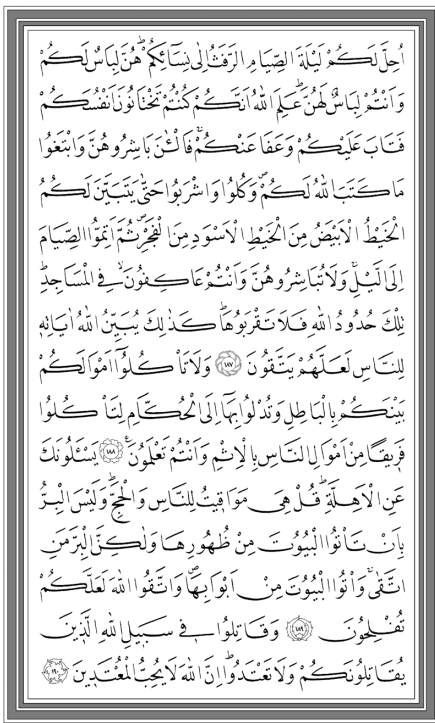 اُحِلَّ لَكُمْ لَيْلَةَ الصِّيَامِ الرَّفَثُ اِلٰى نِسَٓائِكُمْۜ هُنَّ لِبَاسٌ لَكُمْ
وَاَنْتُمْ لِبَاسٌ لَهُنَّۜ عَلِمَ اللّٰهُ اَنَّكُمْ كُنْتُمْ تَخْتَانُونَ اَنْفُسَكُمْ
فَتَابَ عَلَيْكُمْ وَعَفَا عَنْكُمْۚ فَالْـٰٔنَ بَاشِرُوهُنَّ وَابْتَغُوا
مَا كَتَبَ اللّٰهُ لَكُمْۖ وَكُلُوا وَاشْرَبُوا حَتّٰى يَتَبَيَّنَ لَكُمُ
الْخَيْطُ الْاَبْيَضُ مِنَ الْخَيْطِ الْاَسْوَدِ مِنَ الْفَجْرِۖ ثُمَّ اَتِمُّوا الصِّيَامَ
اِلَى الَّيْلِۚ وَلَا تُبَاشِرُوهُنَّ وَاَنْتُمْ عَاكِفُونَۙ فِي الْمَسَاجِدِۜ
تِلْكَ حُدُودُ اللّٰهِ فَلَا تَقْرَبُوهَاۜ كَذٰلِكَ يُبَيِّنُ اللّٰهُ اٰيَاتِه۪
لِلنَّاسِ لَعَلَّهُمْ يَتَّقُونَ ﴿١٨٧﴾ وَلَا تَأْكُلُٓوا اَمْوَالَكُمْ
بَيْنَكُمْ بِالْبَاطِلِ وَتُدْلُوا بِهَٓا اِلَى الْحُكَّامِ لِتَأْكُلُوا
فَر۪يقاً مِنْ اَمْوَالِ النَّاسِ بِالْاِثْمِ وَاَنْتُمْ تَعْلَمُونَ۟ ﴿١٨٨﴾ يَسْـَٔلُونَكَ
عَنِ الْاَهِلَّةِۜ قُلْ هِيَ مَوَاق۪يتُ لِلنَّاسِ وَالْحَجِّۜ وَلَيْسَ الْبِرُّ
بِاَنْ تَأْتُوا الْبُيُوتَ مِنْ ظُهُورِهَا وَلٰكِنَّ الْبِرَّ مَنِ
اتَّقٰىۚ وَأْتُوا الْبُيُوتَ مِنْ اَبْوَابِهَاۖ وَاتَّقُوا اللّٰهَ لَعَلَّكُمْ
تُفْلِحُونَ ﴿١٨٩﴾ وَقَاتِلُوا ف۪ي سَب۪يلِ اللّٰهِ الَّذ۪ينَ
يُقَاتِلُونَكُمْ وَلَا تَعْتَدُواۜ اِنَّ اللّٰهَ لَا يُحِبُّ الْمُعْتَد۪ينَ ﴿١٩٠﴾